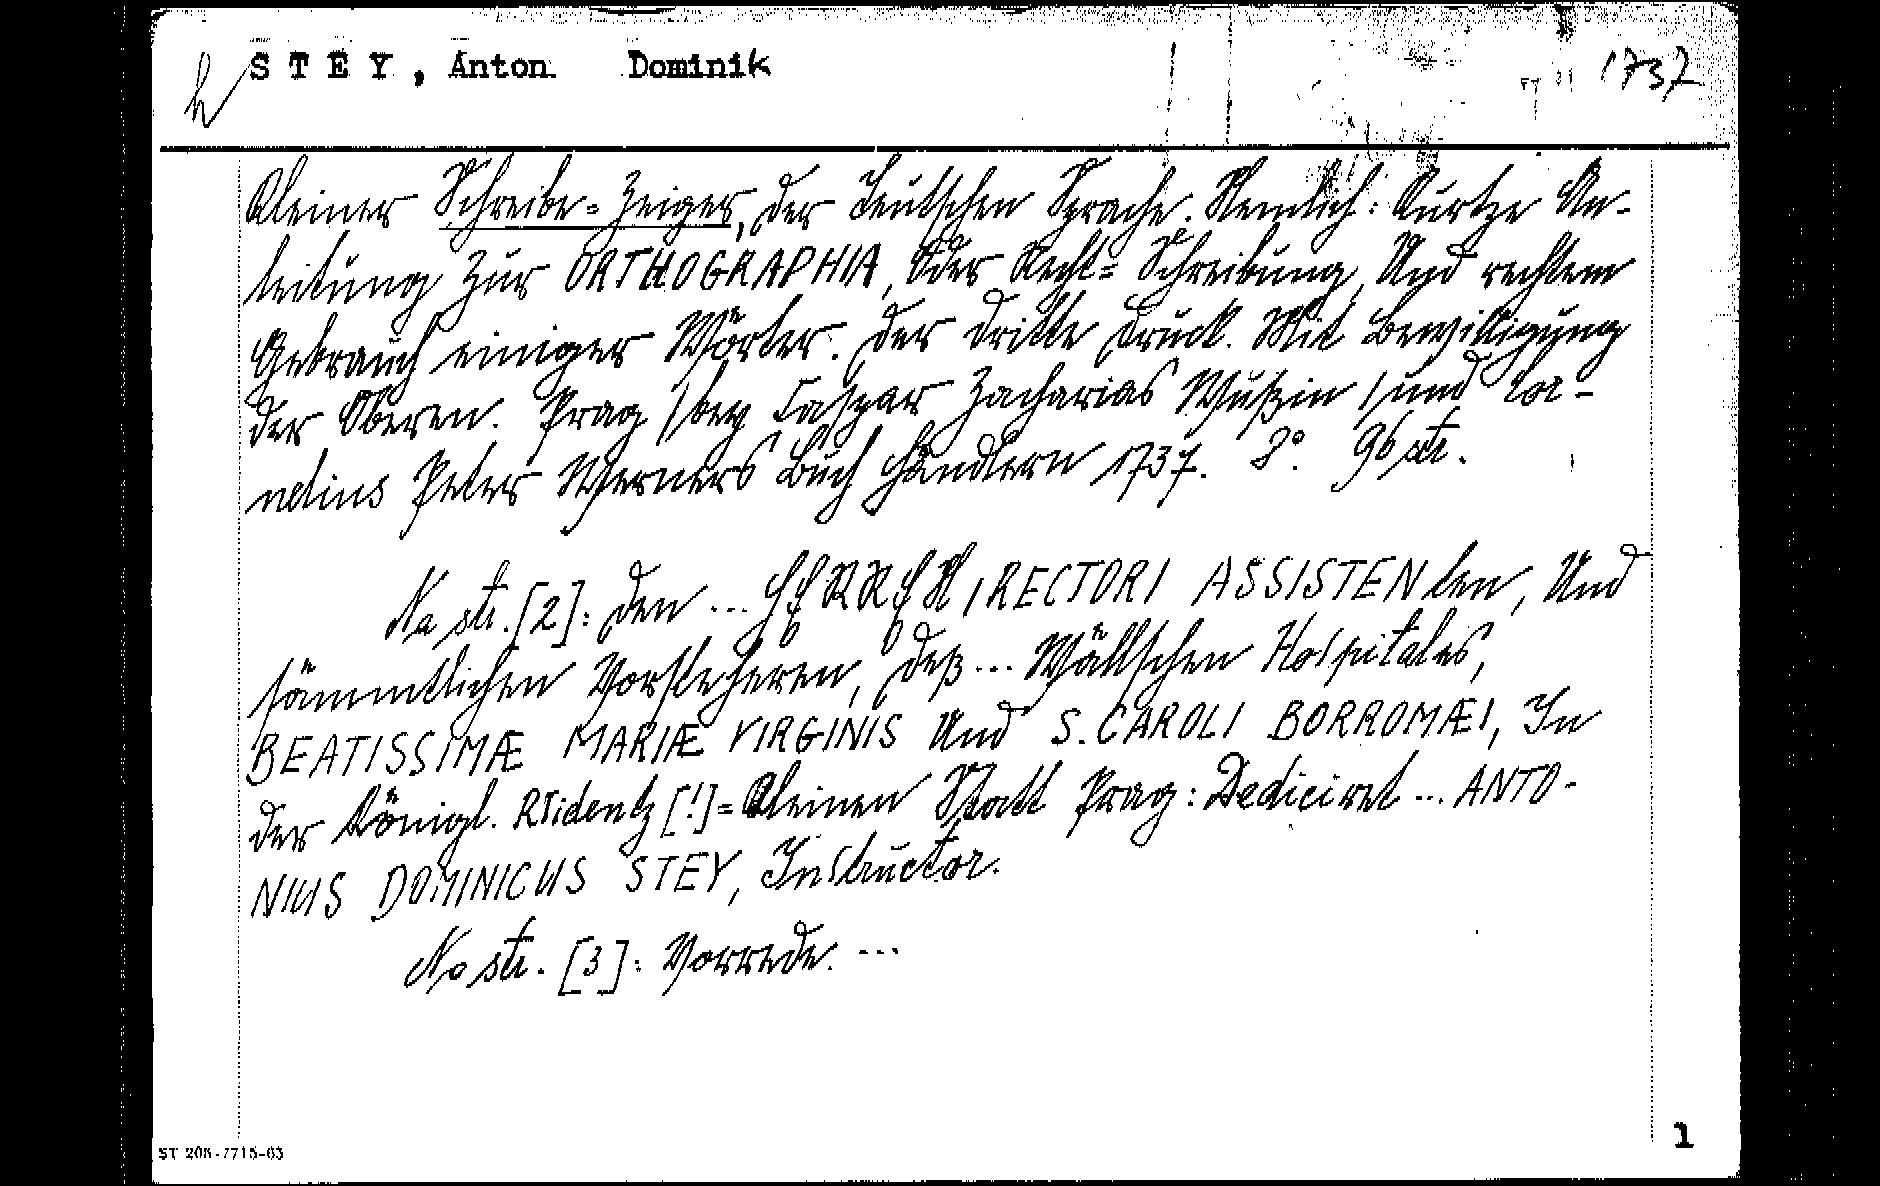 STEY, Anton Dominik 1737
Kleiner Schreibe=Zeiger, der Teutschen Sprache. Nemlich: Kurtze An-
leitung Zur ORTHOGRAPHIA, Oder Recht=Schreibung, Und rechtem
Gebrauch einiger Wörter. Der dritte Druck. Mit Bewilligung
der Oberen. Prag / bey Caspar Zacharias Wußin / und Cor-
nelius Peter Werners Buch Händlern 1737. 8°. 96 str.
Na str. [2]: Den ... HERREN, RECTORI ASSISTENten, Und
sämmtlichen Vorsteheren, Deß ... Wällschen Hospitales,
BEATISSIMÆ MARIÆ VIRGINIS Und S. CAROLI BORROMÆI, In
der Königl. Rsidentz [!]=Kleinen Statt Prag: Dediciret ... ANTO-
NIUS DOMINICUS STEY, Instructor.
Na str. [3]: Vorrede. ...
ST 208-7715-63
1